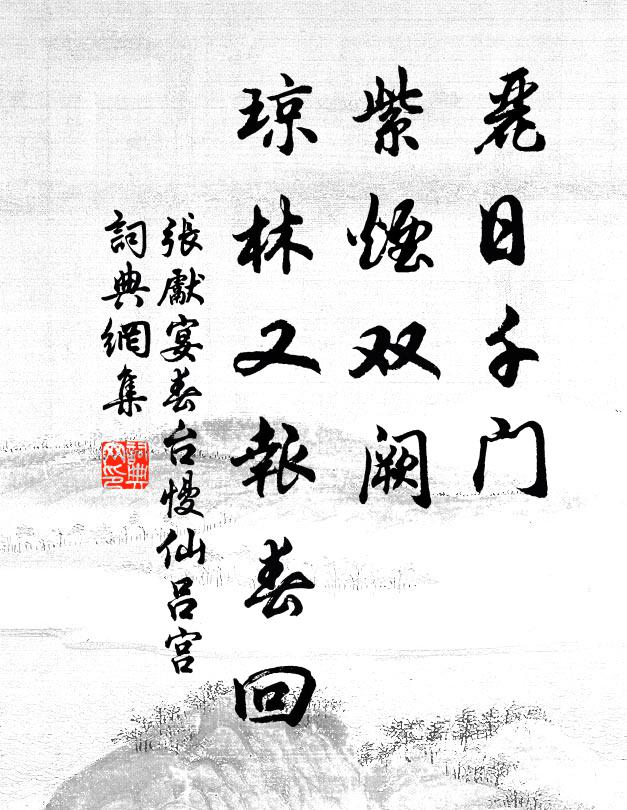 麗日千门
紫煙双阙
琼林又報春回
張獻宴春台慢仙吕宫
詞典網集
詞典网印